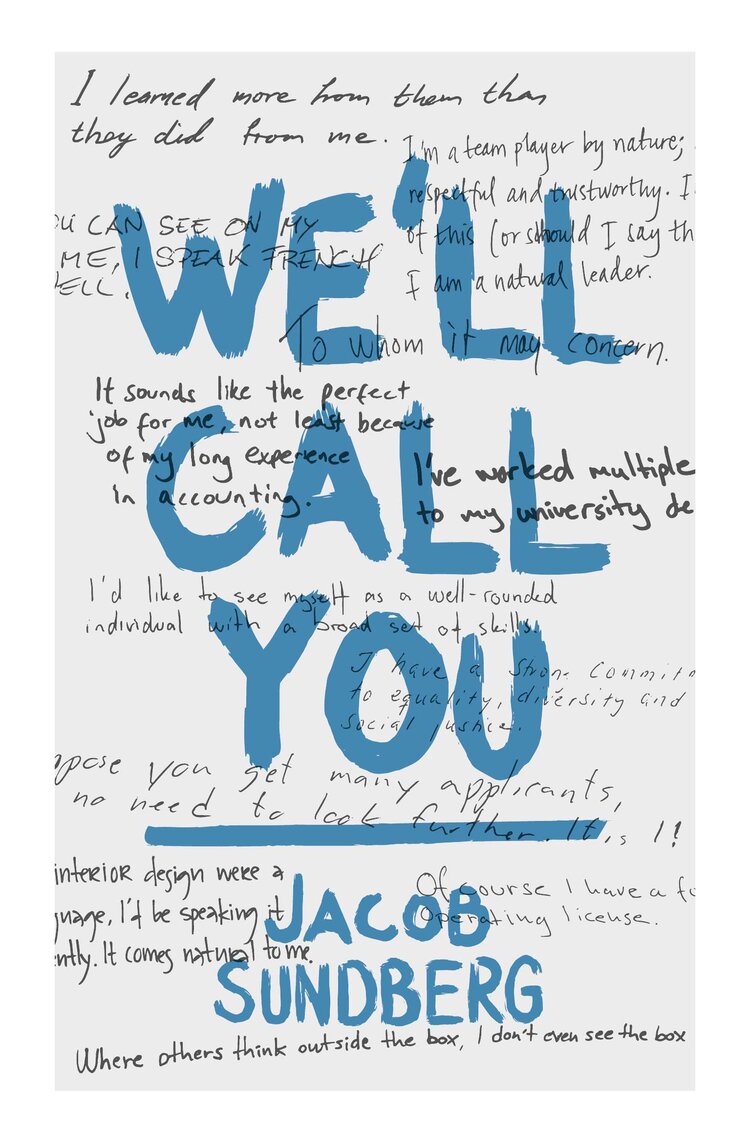 I learned more from them than
they did from me.
I'm a team player by nature;
respectful and trustworthy. I
of this (or should I say th
I am a natural leader.
OU CAN SEE ON MY
ME, I SPEAK FRENCH
ELL.
WE'LL
To whom it may concern.
It sounds like the perfect
job for me, not least because
of my long experience
in accounting.
CALL
I've worked multiple
to my university de
I'd like to see myself as a well-rounded
individual with a broad set of skills.
YOU
I have a strong commitm
to equality, diversity and
social justice.
pose you get many applicants,
no need to look further. It's I!
interior design were a
guage, I'd be speaking it
ently. It comes natural to me.
Of course I have a fo
operating license.
JACOB
SUNDBERG
Where others think outside the box, I don't even see the box